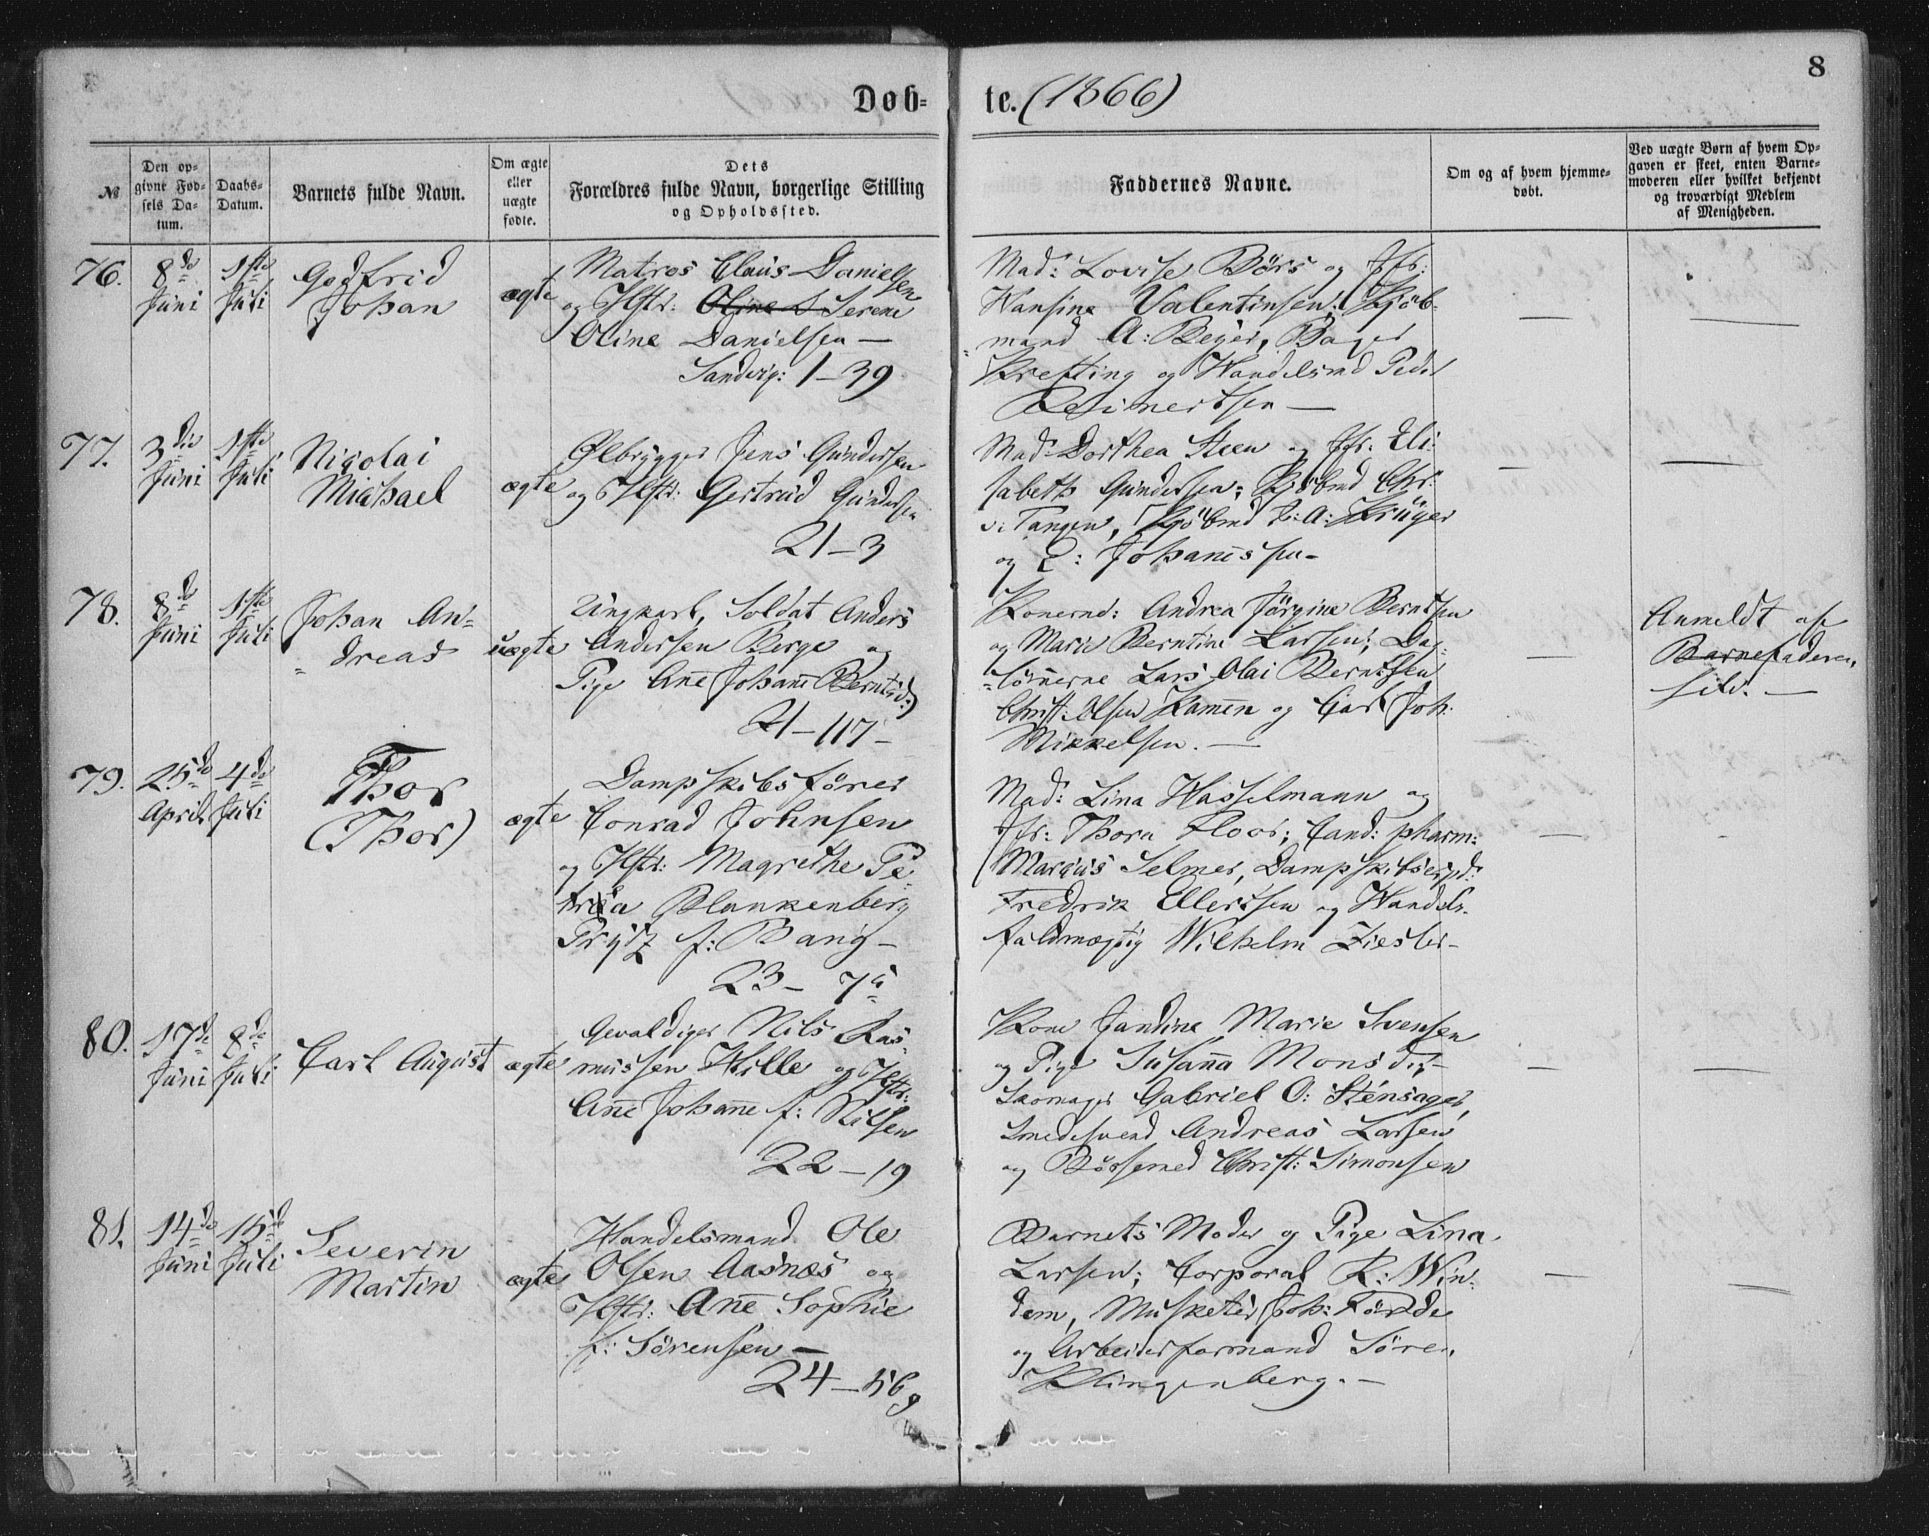 8
Døb- te. (1866)
№
Den op-
givne Fød-
sels Da-
tum.
Daabs-
Datum.
Barnets fulde Navn.
Om ægte
eller
uægte
fødte.
Dets
Forældres fulde Navn, borgerlige Stilling
og Opholdssted.
Faddernes Navne.
Om og af hvem hjemme-
døbt.
Ved uægte Børn af hvem Op-
gaven er skeet, enten Barne-
moderen eller hvilket bekjendt
og troværdigt Medlem
af Menigheden.
76.
8de
Juni
1ste
Juli
Godfrid
Johan
ægte
Matros Claus Danielsen
og Hstr: Oline S Serene
Oline Danielsen —
Sandvig: 1–39
Mad: Lovise Börs og Jfr:
Hansine Valentinsen; Kjöb-
mand A: Beyer, Bager
Krefting og Handelsmd Peder
Reimertsen —
77.
3die
Juni
1ste
Juli
Nicolai
Michael
ægte
Ølbrygger Jens Gundersen
og Hstr: Gertrud Gundersen
21–3
Mad: Dorthea Steen og Jfr: Eli-
sabeth Gundersen; Kjöbmd Chr:
v: Tangen, Kjöbmd F: A: Krüger
og L: Johanesen –
78.
8de
Juni
1ste
Juli
Johan An-
dreas
uægte
Ungkarl, Soldat Anders
Andersen Berge og
Pige Ane Johane Berntsd:)
21–117–
Konerne: Andrea Jörgine Berntsen
og Marie Berntine Larsen; Dag-
lönnerne Lars Olai Berntsen,
Christ: Olsen Kamen og Carl Joh.
Mikkelsen. —
Anmeldt af
Barnefaderen
selv. —
79.
25de
April
4de
Juli
Thor
(Thor)
ægte
Dampskibsförer
Conrad Johnsen
og Hstr: Magrethe Pe-
trea Blankenberg
Prytz f: Bang –
23– 7a
Mad: Lina Hasselmann og
Jfr: Thora Floor; Cand: pharm:
Marcus Selmer, Dampskibsexpd:
Fredrik Ellertsen og Handels-
fuldmægtig Wilhelm Ziesler –
80.
17de
Juni
8de
Juli
Carl August
ægte
Gevaldiger Nils Ras-
mussen Hille og Hstr:
Ane Johanne f: Nilsen
22–19
Kone Jandine Marie Svensen
og Pige Susanna Monsdtr –
Skomager Gabriel O: Stensager,
Smedesvend Andreas Larsen
og Börsemed Christ: Simonsen
81.
14de
Juni
15de
Juli
Severin
Martin
ægte
Handelsmand Ole
Olsen Aasnæs og
Hstr: Ane Sophie
f: Sörensen —
24–56g
Barnets Moder og Pige Lina
Larsen; Corporal R: Win-
dem, Musketer Joh: Förde
og Arbeidsformand Sören
Klingenberg. —